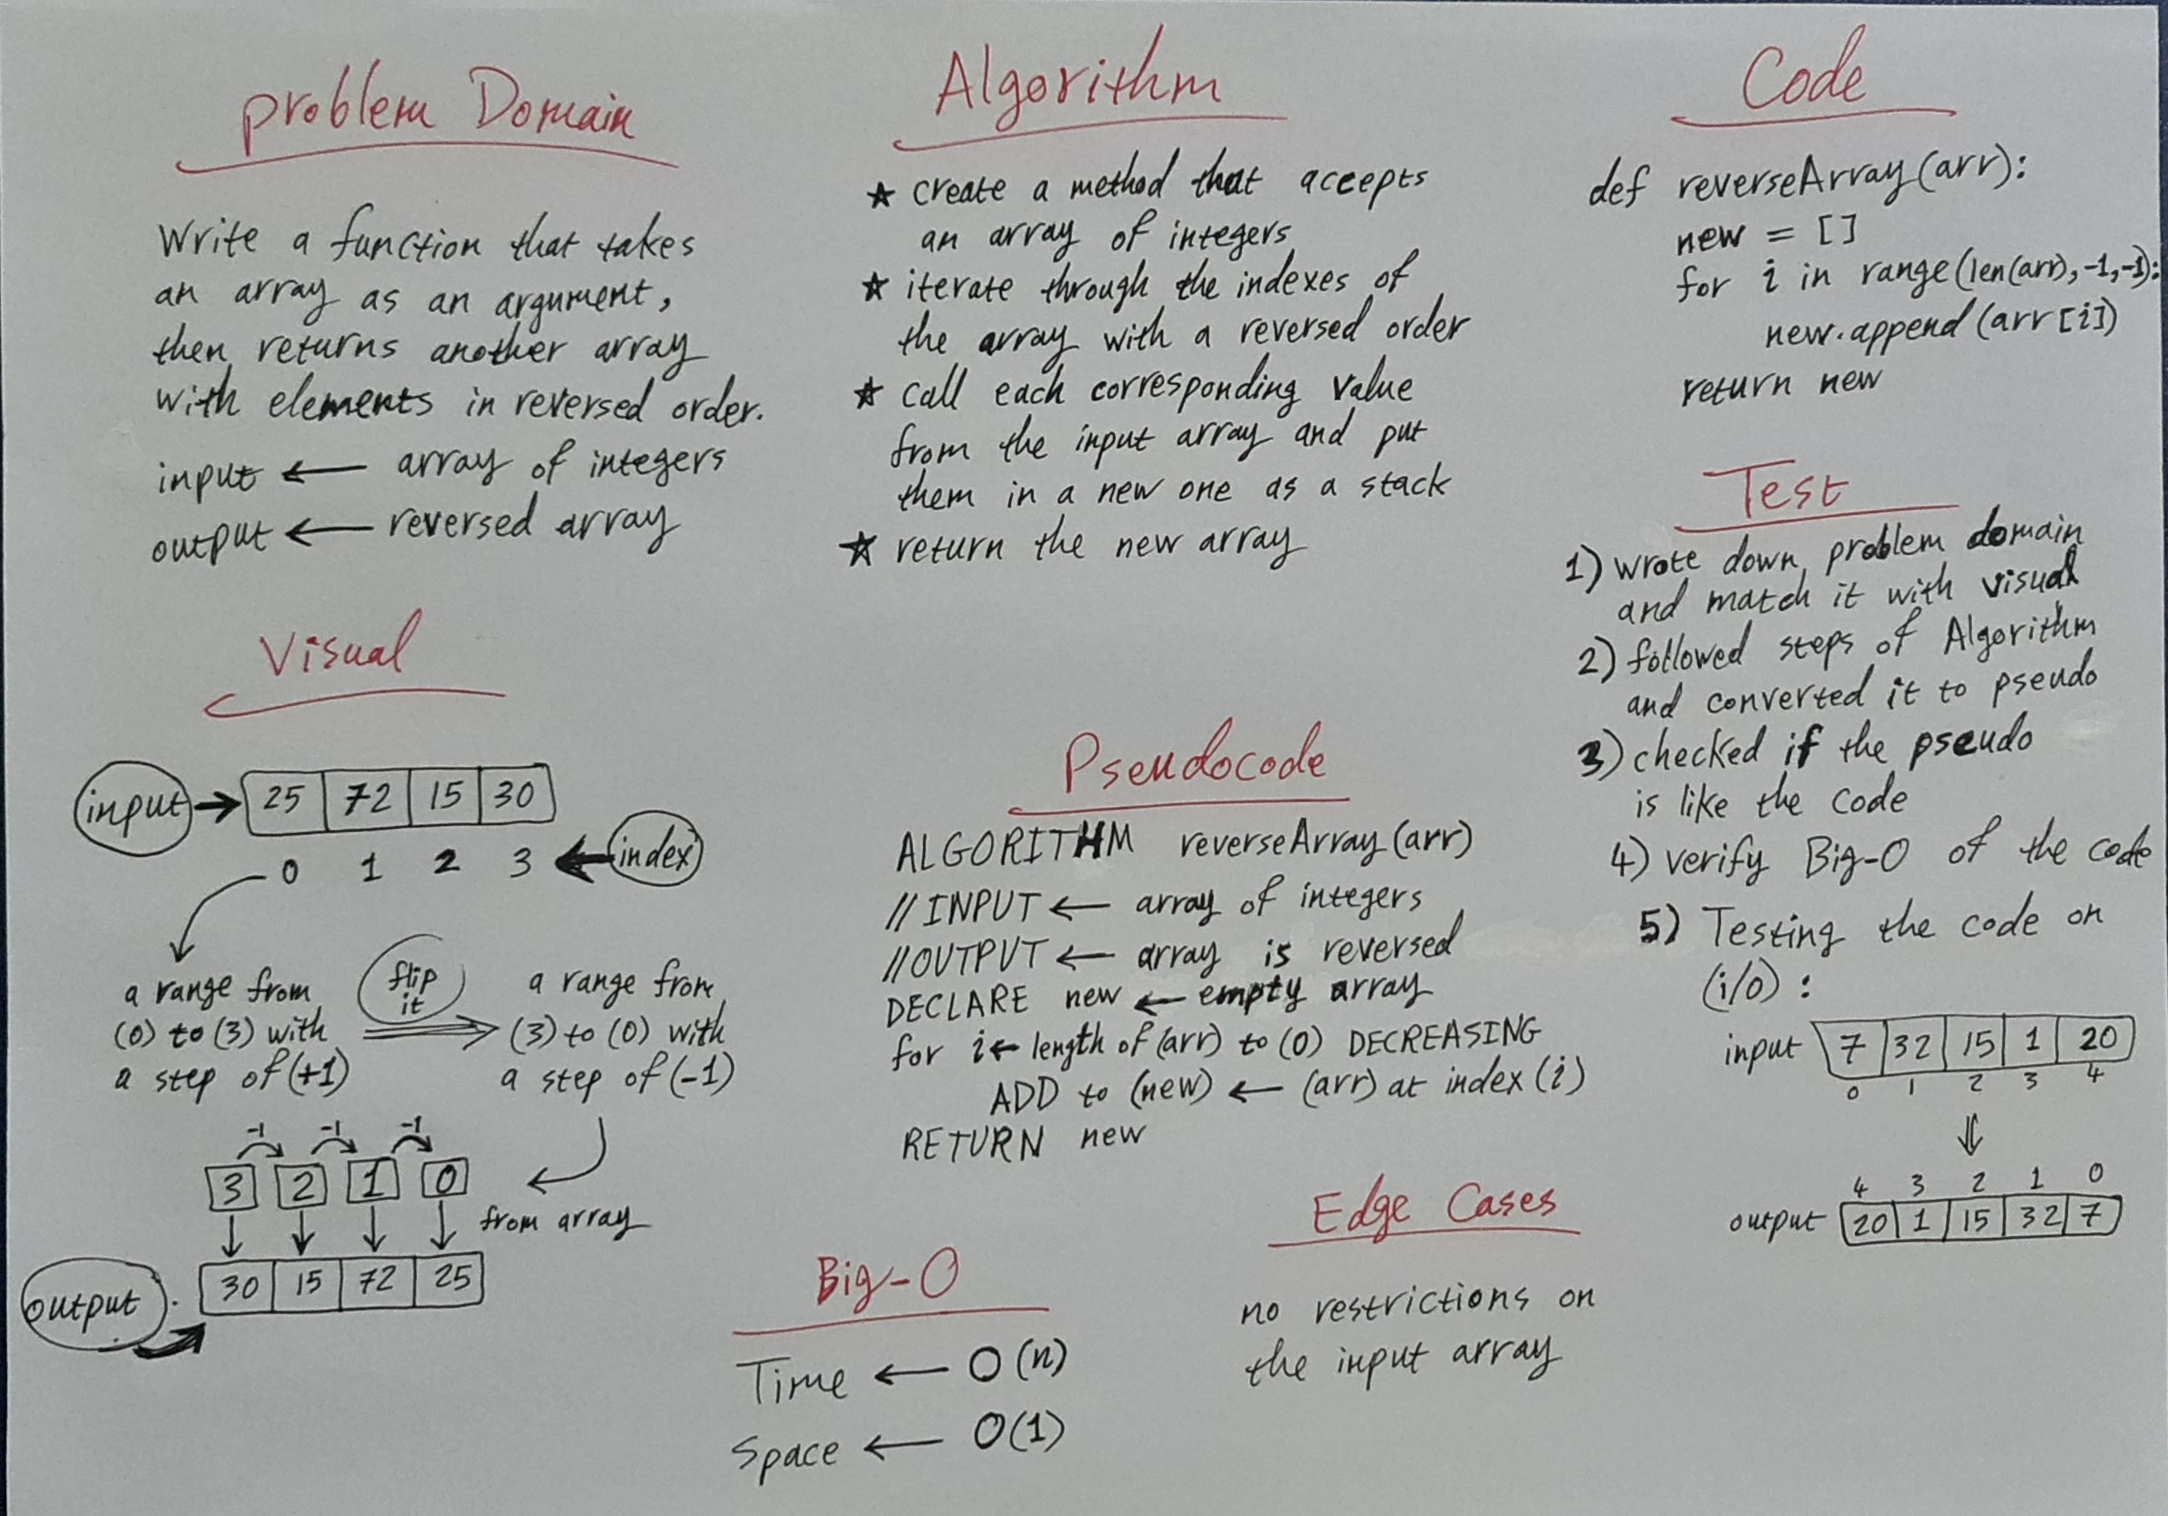 problem Domain
Write a function that takes
an array as an argument,
then returns another array
with elements in reversed order.
input ← array of integers
output ← reversed array
Visual
input → 25 72 15 30
0 1 2 3 ← index
a range from
(0) to (3) with
a step of (+1)
flip
it
a range from
(3) to (0) with
a step of (-1)
-1 -1 -1
3 2 1 0
from array
output. 30 15 72 25
Algorithm
★ create a method that accepts
an array of integers
★ iterate through the indexes of
the array with a reversed order
★ call each corresponding value
from the input array and put
them in a new one as a stack
★ return the new array
Pseudocode
ALGORITHM reverseArray(arr)
// INPUT ← array of integers
// OUTPUT ← array is reversed
DECLARE new ← empty array
for i ← length of (arr) to (0) DECREASING
ADD to (new) ← (arr) at index (i)
RETURN new
Big-O
Time ← O(n)
Space ← O(1)
Edge Cases
no restrictions on
the input array
Code
def reverseArray(arr):
new = []
for i in range(len(arr),-1,-1):
new.append(arr[i])
return new
Test
1) wrote down problem domain
and match it with visual
2) followed steps of Algorithm
and converted it to pseudo
3) checked if the pseudo
is like the code
4) verify Big-O of the code
5) Testing the code on
(i/o) :
input 7 32 15 1 20
0 1 2 3 4
⇓
4 3 2 1 0
output 20 1 15 32 7